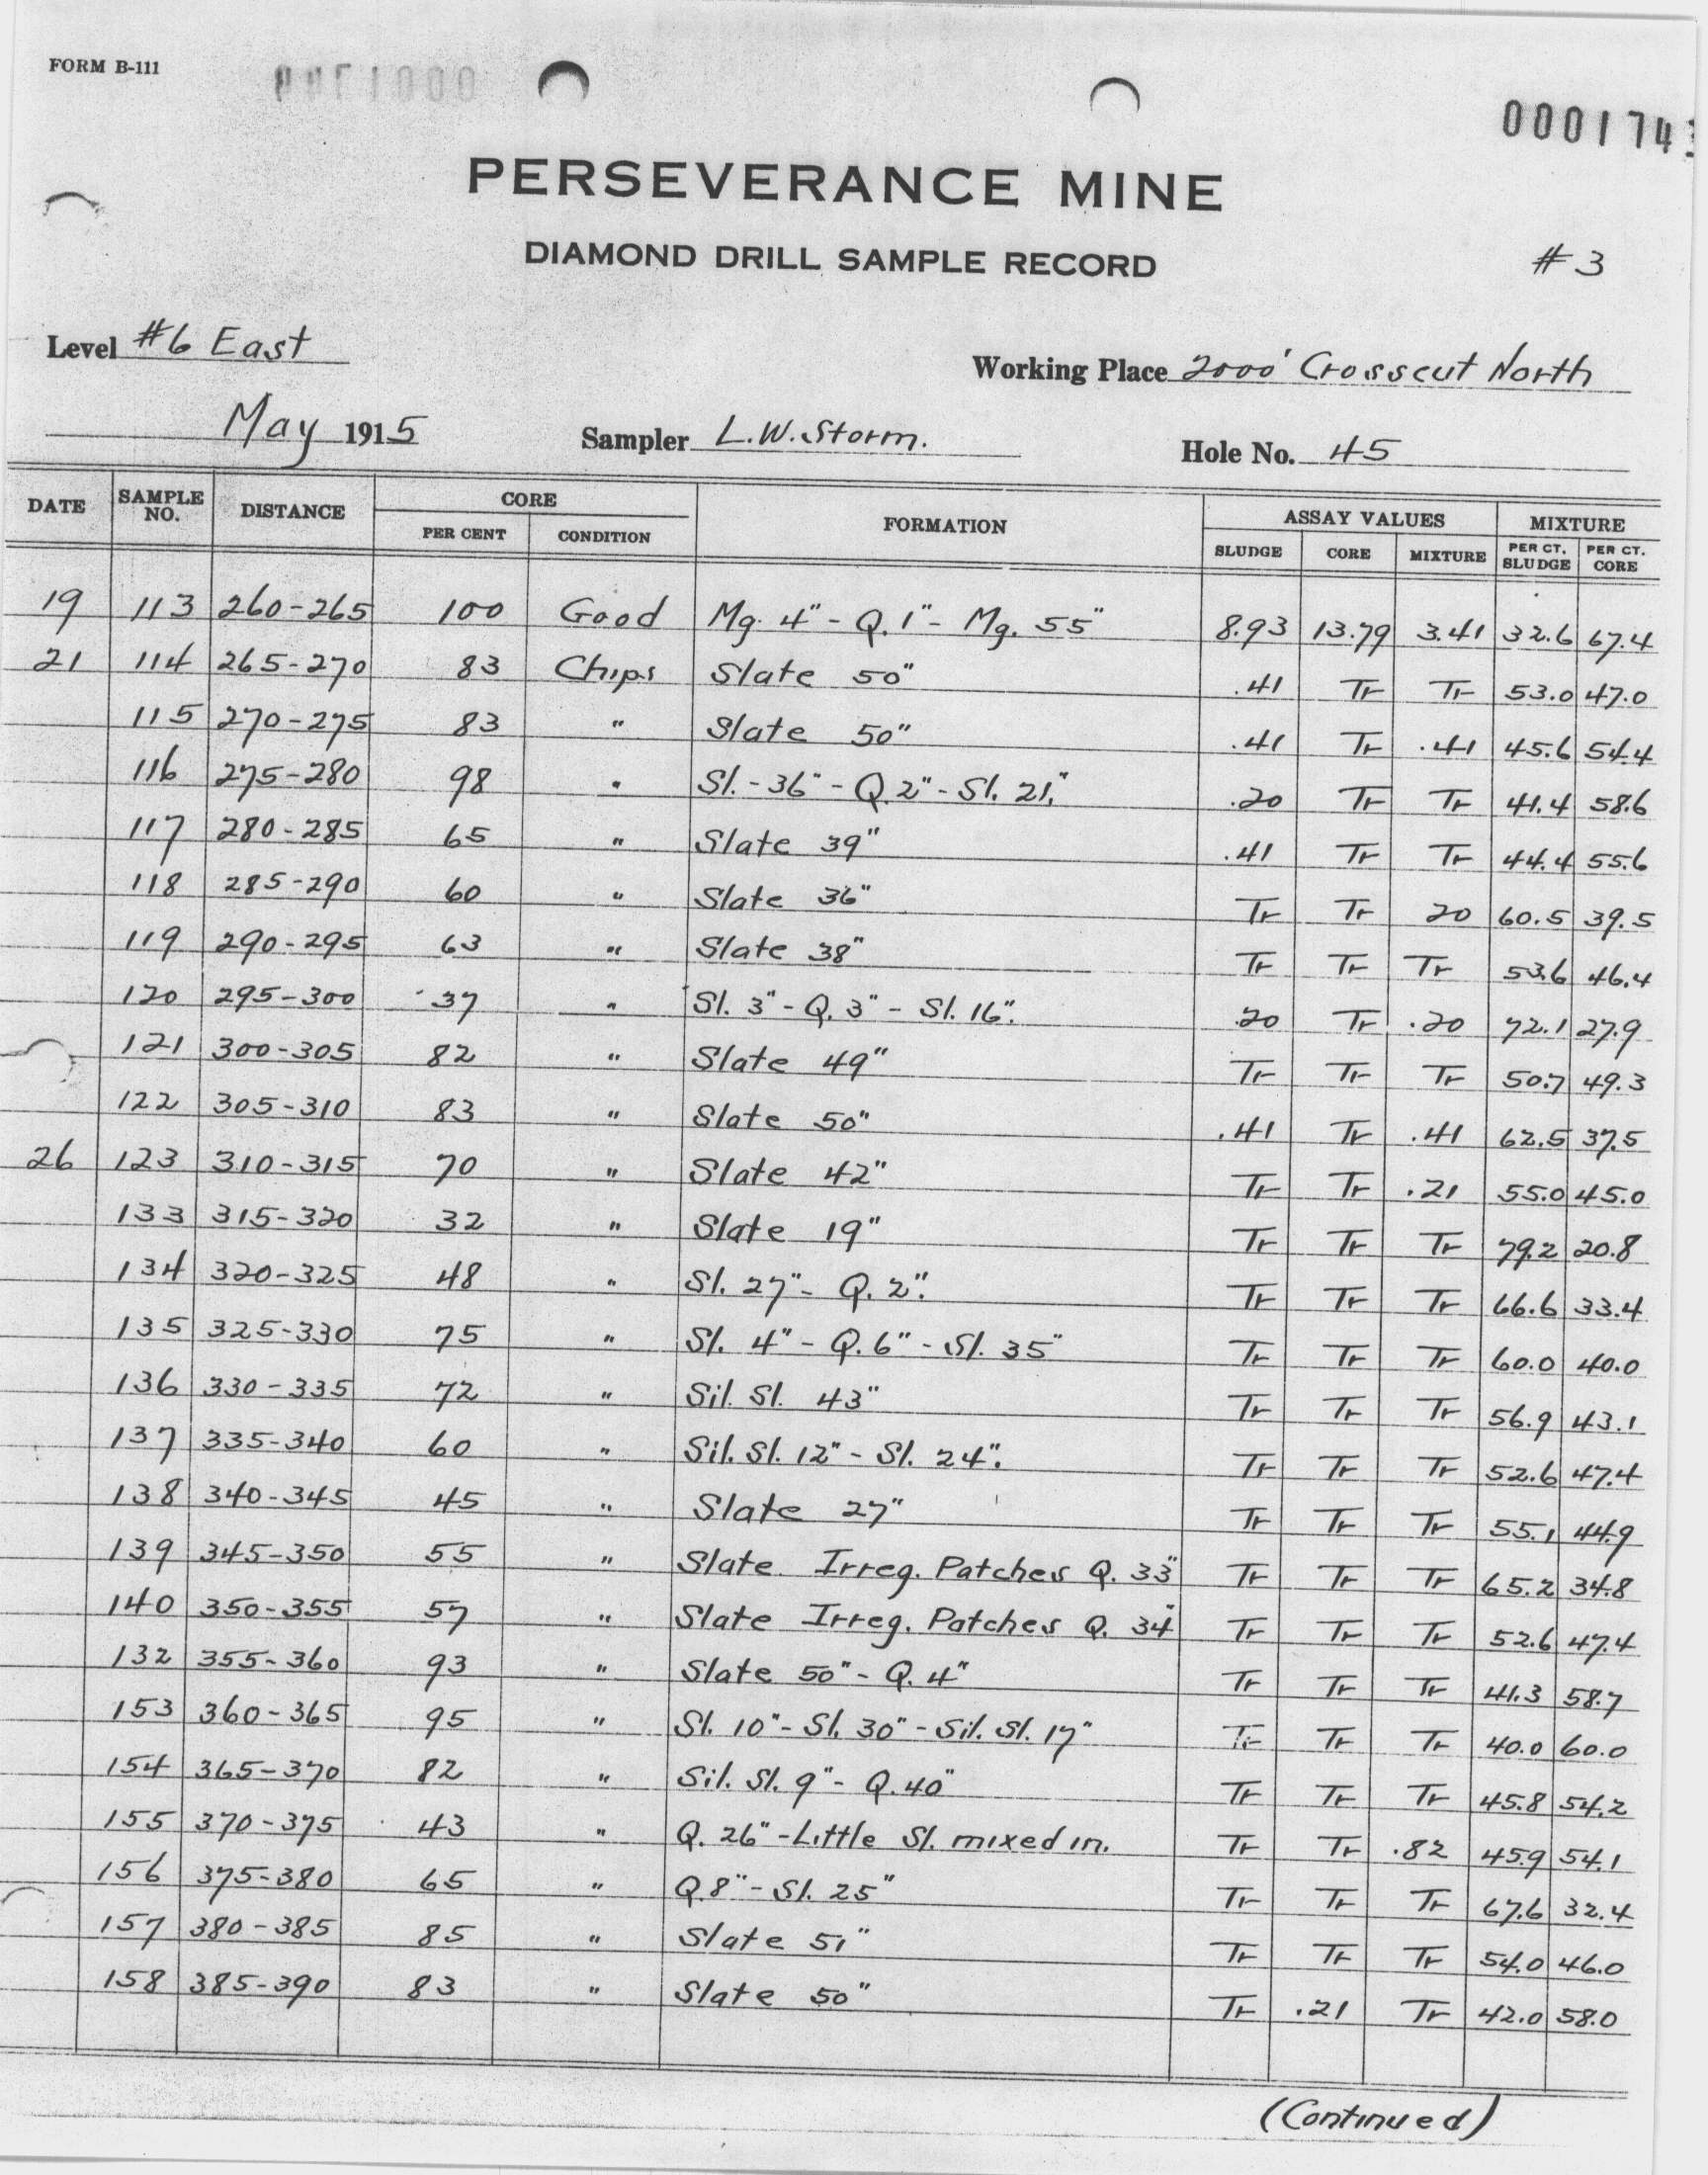 FORM B-111
0001743
PERSEVERANCE MINE
DIAMOND DRILL SAMPLE RECORD
#3
Level #6 East
Working Place 2000' Crosscut North
May 1915 Sampler L.W. Storm. Hole No. 45
DATE SAMPLE NO. DISTANCE CORE FORMATION ASSAY VALUES MIXTURE
PER CENT CONDITION SLUDGE CORE MIXTURE PER CT. SLUDGE PER CT. CORE
19 113 260-265 100 Good Mg. 4" - Q. 1" - Mg. 55" 8.93 13.79 3.41 32.6 67.4
21 114 265-270 83 Chips Slate 50" .41 Tr Tr 53.0 47.0
115 270-275 83 " Slate 50" .41 Tr .41 45.6 54.4
116 275-280 98 " Sl. - 36" - Q. 2" - Sl. 21." .20 Tr Tr 41.4 58.6
117 280-285 65 " Slate 39" .41 Tr Tr 44.4 55.6
118 285-290 60 " Slate 36" Tr Tr 20 60.5 39.5
119 290-295 63 " Slate 38" Tr Tr Tr 53.6 46.4
120 295-300 37 " Sl. 3" - Q. 3" - Sl. 16". .20 Tr .20 72.1 27.9
121 300-305 82 " Slate 49" Tr Tr Tr 50.7 49.3
122 305-310 83 " Slate 50" .41 Tr .41 62.5 37.5
26 123 310-315 70 " Slate 42" Tr Tr .21 55.0 45.0
133 315-320 32 " Slate 19" Tr Tr Tr 79.2 20.8
134 320-325 48 " Sl. 27" - Q. 2". Tr Tr Tr 66.6 33.4
135 325-330 75 " Sl. 4" - Q. 6" - Sl. 35" Tr Tr Tr 60.0 40.0
136 330-335 72 " Sil. Sl. 43" Tr Tr Tr 56.9 43.1
137 335-340 60 " Sil. Sl. 12" - Sl. 24". Tr Tr Tr 52.6 47.4
138 340-345 45 " Slate 27" Tr Tr Tr 55.1 44.9
139 345-350 55 " Slate Irreg. Patches Q. 33" Tr Tr Tr 65.2 34.8
140 350-355 57 " Slate Irreg. Patches Q. 34" Tr Tr Tr 52.6 47.4
132 355-360 93 " Slate 50" - Q. 4" Tr Tr Tr 41.3 58.7
153 360-365 95 " Sl. 10" - Sl. 30" - Sil. Sl. 17" Tr Tr Tr 40.0 60.0
154 365-370 82 " Sil. Sl. 9" - Q. 40" Tr Tr Tr 45.8 54.2
155 370-375 43 " Q. 26" - Little Sl. mixed in. Tr Tr .82 45.9 54.1
156 375-380 65 " Q. 8" - Sl. 25" Tr Tr Tr 67.6 32.4
157 380-385 85 " Slate 51" Tr Tr Tr 54.0 46.0
158 385-390 83 " Slate 50" Tr .21 Tr 42.0 58.0
(Continued)